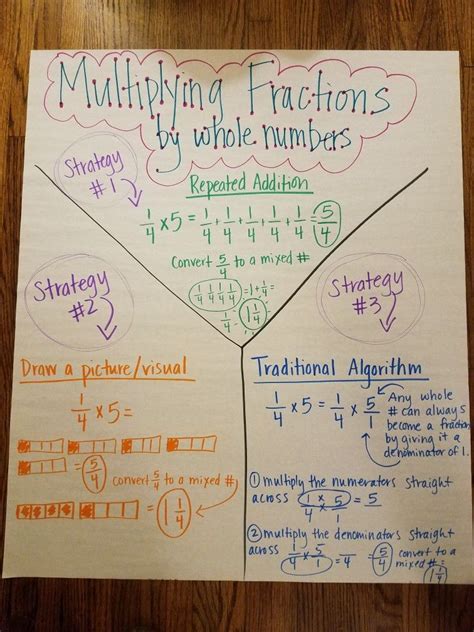 Multiplying Fractions
by whole numbers
Strategy
#1
Repeated Addition
1/4 x 5 = 1/4 + 1/4 + 1/4 + 1/4 + 1/4 = 5/4
convert 5/4 to a mixed #
1/4 1/4 1/4 1/4 = 1 + 1/4 =
1/4 1 1/4
Strategy
#2
Draw a picture/visual
1/4 x 5 =
= 5/4 convert 5/4 to a mixed #
= 1 1/4
Strategy
#3
Traditional Algorithm
1/4 x 5 = 1/4 x 5/1
Any whole
# can always
become a fraction
by giving it a
denominator of 1.
① multiply the numerators straight
across 1/4 x 5/1 = 5
② multiply the denominators straight
across 1/4 x 5/1 = /4 = 5/4 convert to a
mixed # =
1 1/4